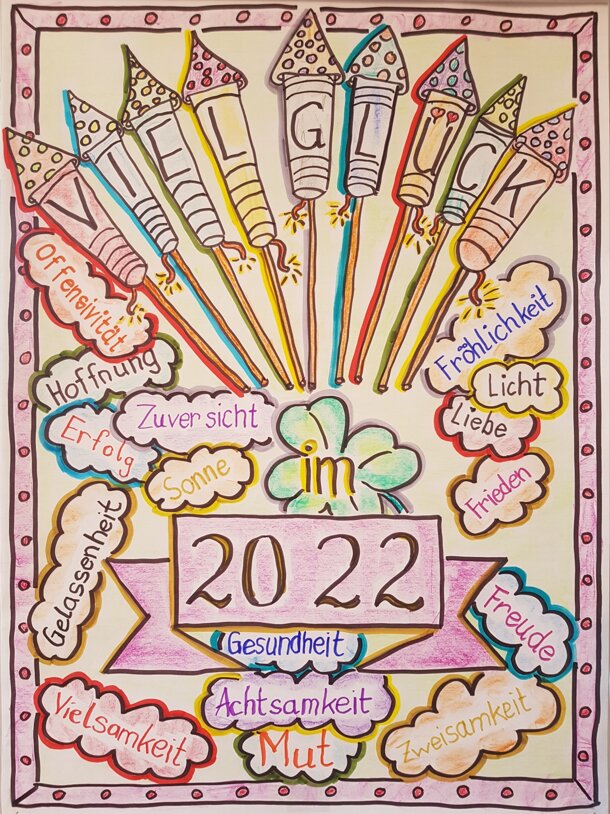 VIEL GLÜCK
Offensivität
Hoffnung
Zuversicht
Erfolg
Sonne
Gelassenheit
Fröhlichkeit
Licht
Liebe
Frieden
im
2022
Gesundheit
Freude
Achtsamkeit
Vielsamkeit
Mut
Zweisamkeit